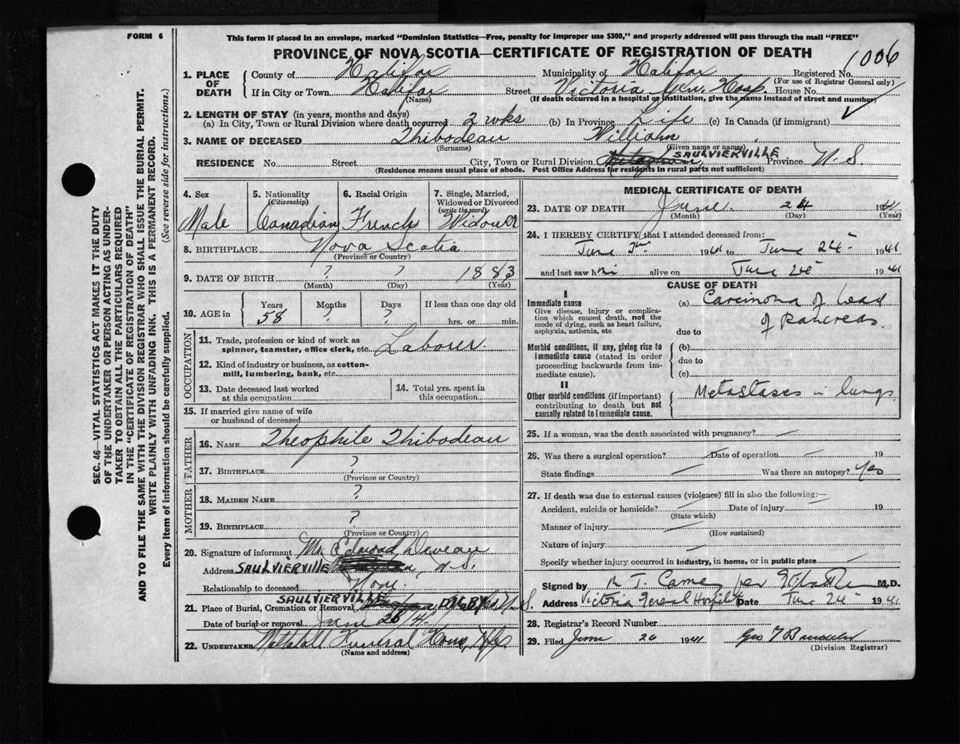 FORM 6
This form if placed in an envelope, marked "Dominion Statistics—Free, penalty for improper use $300," and properly addressed will pass through the mail "FREE"
PROVINCE OF NOVA SCOTIA—CERTIFICATE OF REGISTRATION OF DEATH
1006
SEC. 46—VITAL STATISTICS ACT MAKES IT THE DUTY
OF THE UNDERTAKER OR PERSON ACTING AS UNDER-
TAKER TO OBTAIN ALL THE PARTICULARS REQUIRED
IN THE "CERTIFICATE OF REGISTRATION OF DEATH"
AND TO FILE THE SAME WITH THE DIVISION REGISTRAR WHO SHALL ISSUE THE BURIAL PERMIT.
WRITE PLAINLY WITH UNFADING INK. THIS IS A PERMANENT RECORD.
Every item of information should be carefully supplied. (See reverse side for instructions.)
1. PLACE OF DEATH
County of Halifax Municipality of Halifax Registered No.
(For use of Registrar General only)
If in City or Town Halifax Street Victoria Gen. Hosp. House No.
(Name) (If death occurred in a hospital or institution, give the name instead of street and number)
2. LENGTH OF STAY (in years, months and days)
(a) In City, Town or Rural Division where death occurred 2 wks (b) In Province Life (c) In Canada (if immigrant)
3. NAME OF DECEASED Thibodeau William
(Surname) (Given name or names)
RESIDENCE No. Street City, Town or Rural Division SAULVIERVILLE Province N.S.
(Residence means usual place of abode. Post Office Address for residents in rural parts not sufficient)
4. Sex Male
5. Nationality (Citizenship) Canadian
6. Racial Origin French
7. Single, Married, Widowed or Divorced (write the word) Widower
8. BIRTHPLACE Nova Scotia
(Province or Country)
9. DATE OF BIRTH ? ? 1883
(Month) (Day) (Year)
10. AGE in Years 58 Months ? Days ? If less than one day old
hrs. or min.
OCCUPATION
11. Trade, profession or kind of work as spinner, teamster, office clerk, etc. Laborer
12. Kind of industry or business, as cotton-mill, lumbering, bank, etc.
13. Date deceased last worked at this occupation
14. Total yrs. spent in this occupation
15. If married give name of wife or husband of deceased
FATHER
16. NAME Theophile Thibodeau
17. BIRTHPLACE ?
(Province or Country)
MOTHER
18. MAIDEN NAME ?
19. BIRTHPLACE ?
(Province or Country)
20. Signature of informant Mr. Edward Deveau
Address SAULVIERVILLE N.S.
Relationship to deceased None
SAULVIERVILLE
21. Place of Burial, Cremation or Removal DIGBY
Date of burial or removal June 26/41
22. UNDERTAKER Funeral Home, Hfx
(Name and address)
MEDICAL CERTIFICATE OF DEATH
23. DATE OF DEATH June 24 1941
(Month) (Day) (Year)
24. I HEREBY CERTIFY that I attended deceased from:
June 1941 to June 24 1941
and last saw him alive on June 24 1941
CAUSE OF DEATH
I
Immediate cause
Give disease, injury or complication which caused death, not the mode of dying, such as heart failure, asphyxia, asthenia, etc.
(a) Carcinoma of head
due to of Pancreas
Morbid conditions, if any, giving rise to immediate cause (stated in order proceeding backwards from immediate cause).
(b)
due to
(c)
II
Other morbid conditions (if important) contributing to death but not causally related to immediate cause.
Metastases in lungs
25. If a woman, was the death associated with pregnancy?
26. Was there a surgical operation? Date of operation 19
State findings Was there an autopsy? Yes
27. If death was due to external causes (violence) fill in also the following:—
Accident, suicide or homicide? Date of injury 19
(State which)
Manner of injury
(How sustained)
Nature of injury
Specify whether injury occurred in industry, in home, or in public place
Signed by R T Came per M.D.
Address Victoria General Hospital Date June 24 1941
28. Registrar's Record Number
29. Filed June 26 1941 Geo
(Division Registrar)